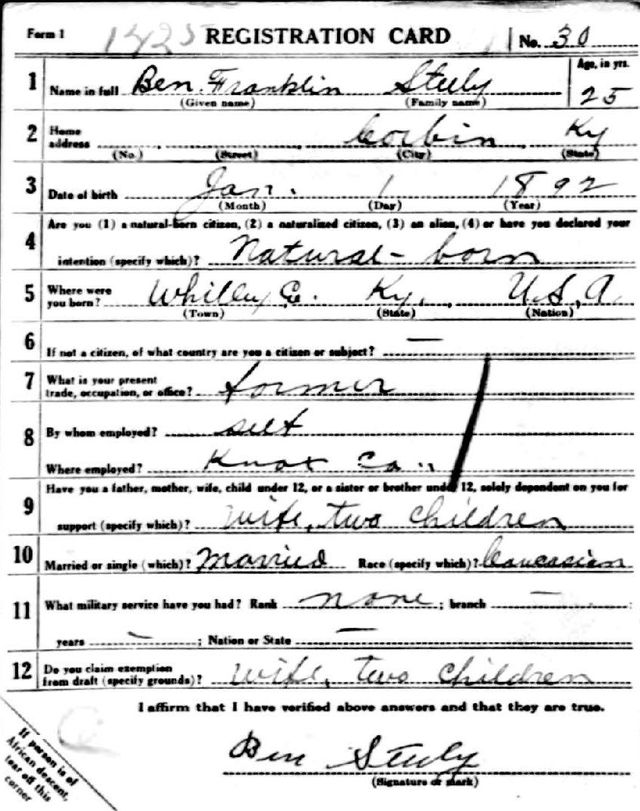 Form 1 1425 REGISTRATION CARD No. 30
1 Name in full Ben Franklin Steely Age, in yrs. 25
(Given name) (Family name)
2 Home address Corbin Ky
(No.) (Street) (City) (State)
3 Date of birth Jan. 1 1892
(Month) (Day) (Year)
4 Are you (1) a natural-born citizen, (2) a naturalized citizen, (3) an alien, (4) or have you declared your
intention (specify which)? Natural-born
5 Where were you born? Whitley Co. Ky. U.S.A.
(Town) (State) (Nation)
6 If not a citizen, of what country are you a citizen or subject? —
7 What is your present trade, occupation, or office? farmer
8 By whom employed? self
Where employed? Knox Co.
9 Have you a father, mother, wife, child under 12, or a sister or brother under 12, solely dependent on you for
support (specify which)? Wife, two children
10 Married or single (which)? Married Race (specify which)? Caucasian
11 What military service have you had? Rank none; branch —
years —; Nation or State —
12 Do you claim exemption from draft (specify grounds)? Wife, two children
I affirm that I have verified above answers and that they are true.
Ben Steely
(Signature or mark)
If person is of
African descent,
tear off this
corner